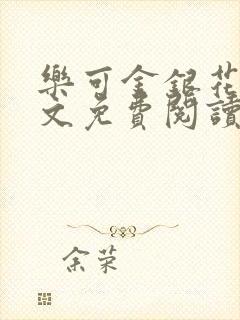 樂可金銀花
文免費閱讀
余荣